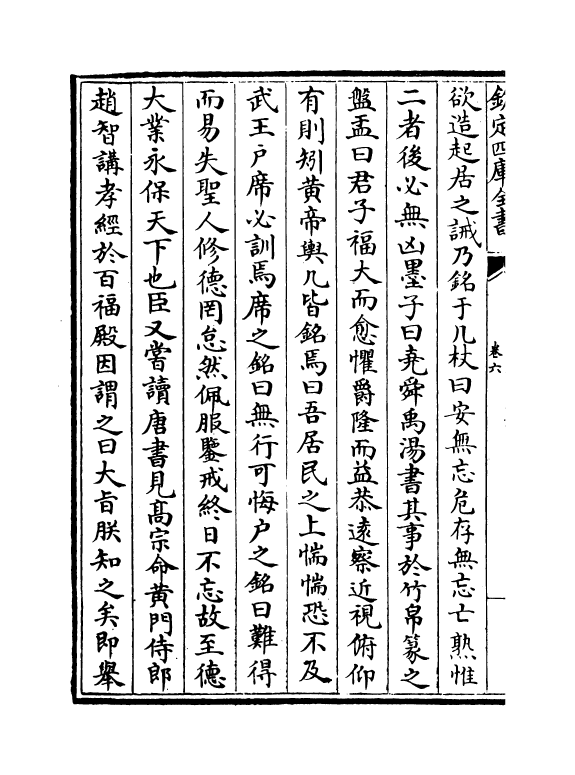 欽定四庫全書
卷六
欲造起居之誡乃銘于几杖曰安無忘危存無忘亡熟惟
二者後必無凶墨子曰堯舜禹湯書其事於竹帛篆之
盤盂曰君子福大而愈懼爵隆而益恭遠察近視俯仰
有則矧黄帝輿几皆銘焉曰吾居民之上惴惴恐不及
武王户席必訓焉席之銘曰無行可悔户之銘曰難得
而易失聖人修德罔怠然佩服鑒戒終日不忘故至德
大業永保天下也臣又嘗讀唐書見髙宗命黄門侍郎
趙智講孝經於百福殿因謂之曰大旨朕知之矣即舉